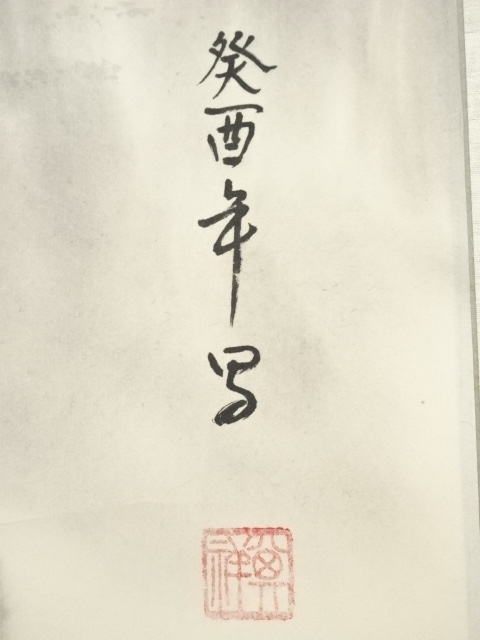 癸酉年写